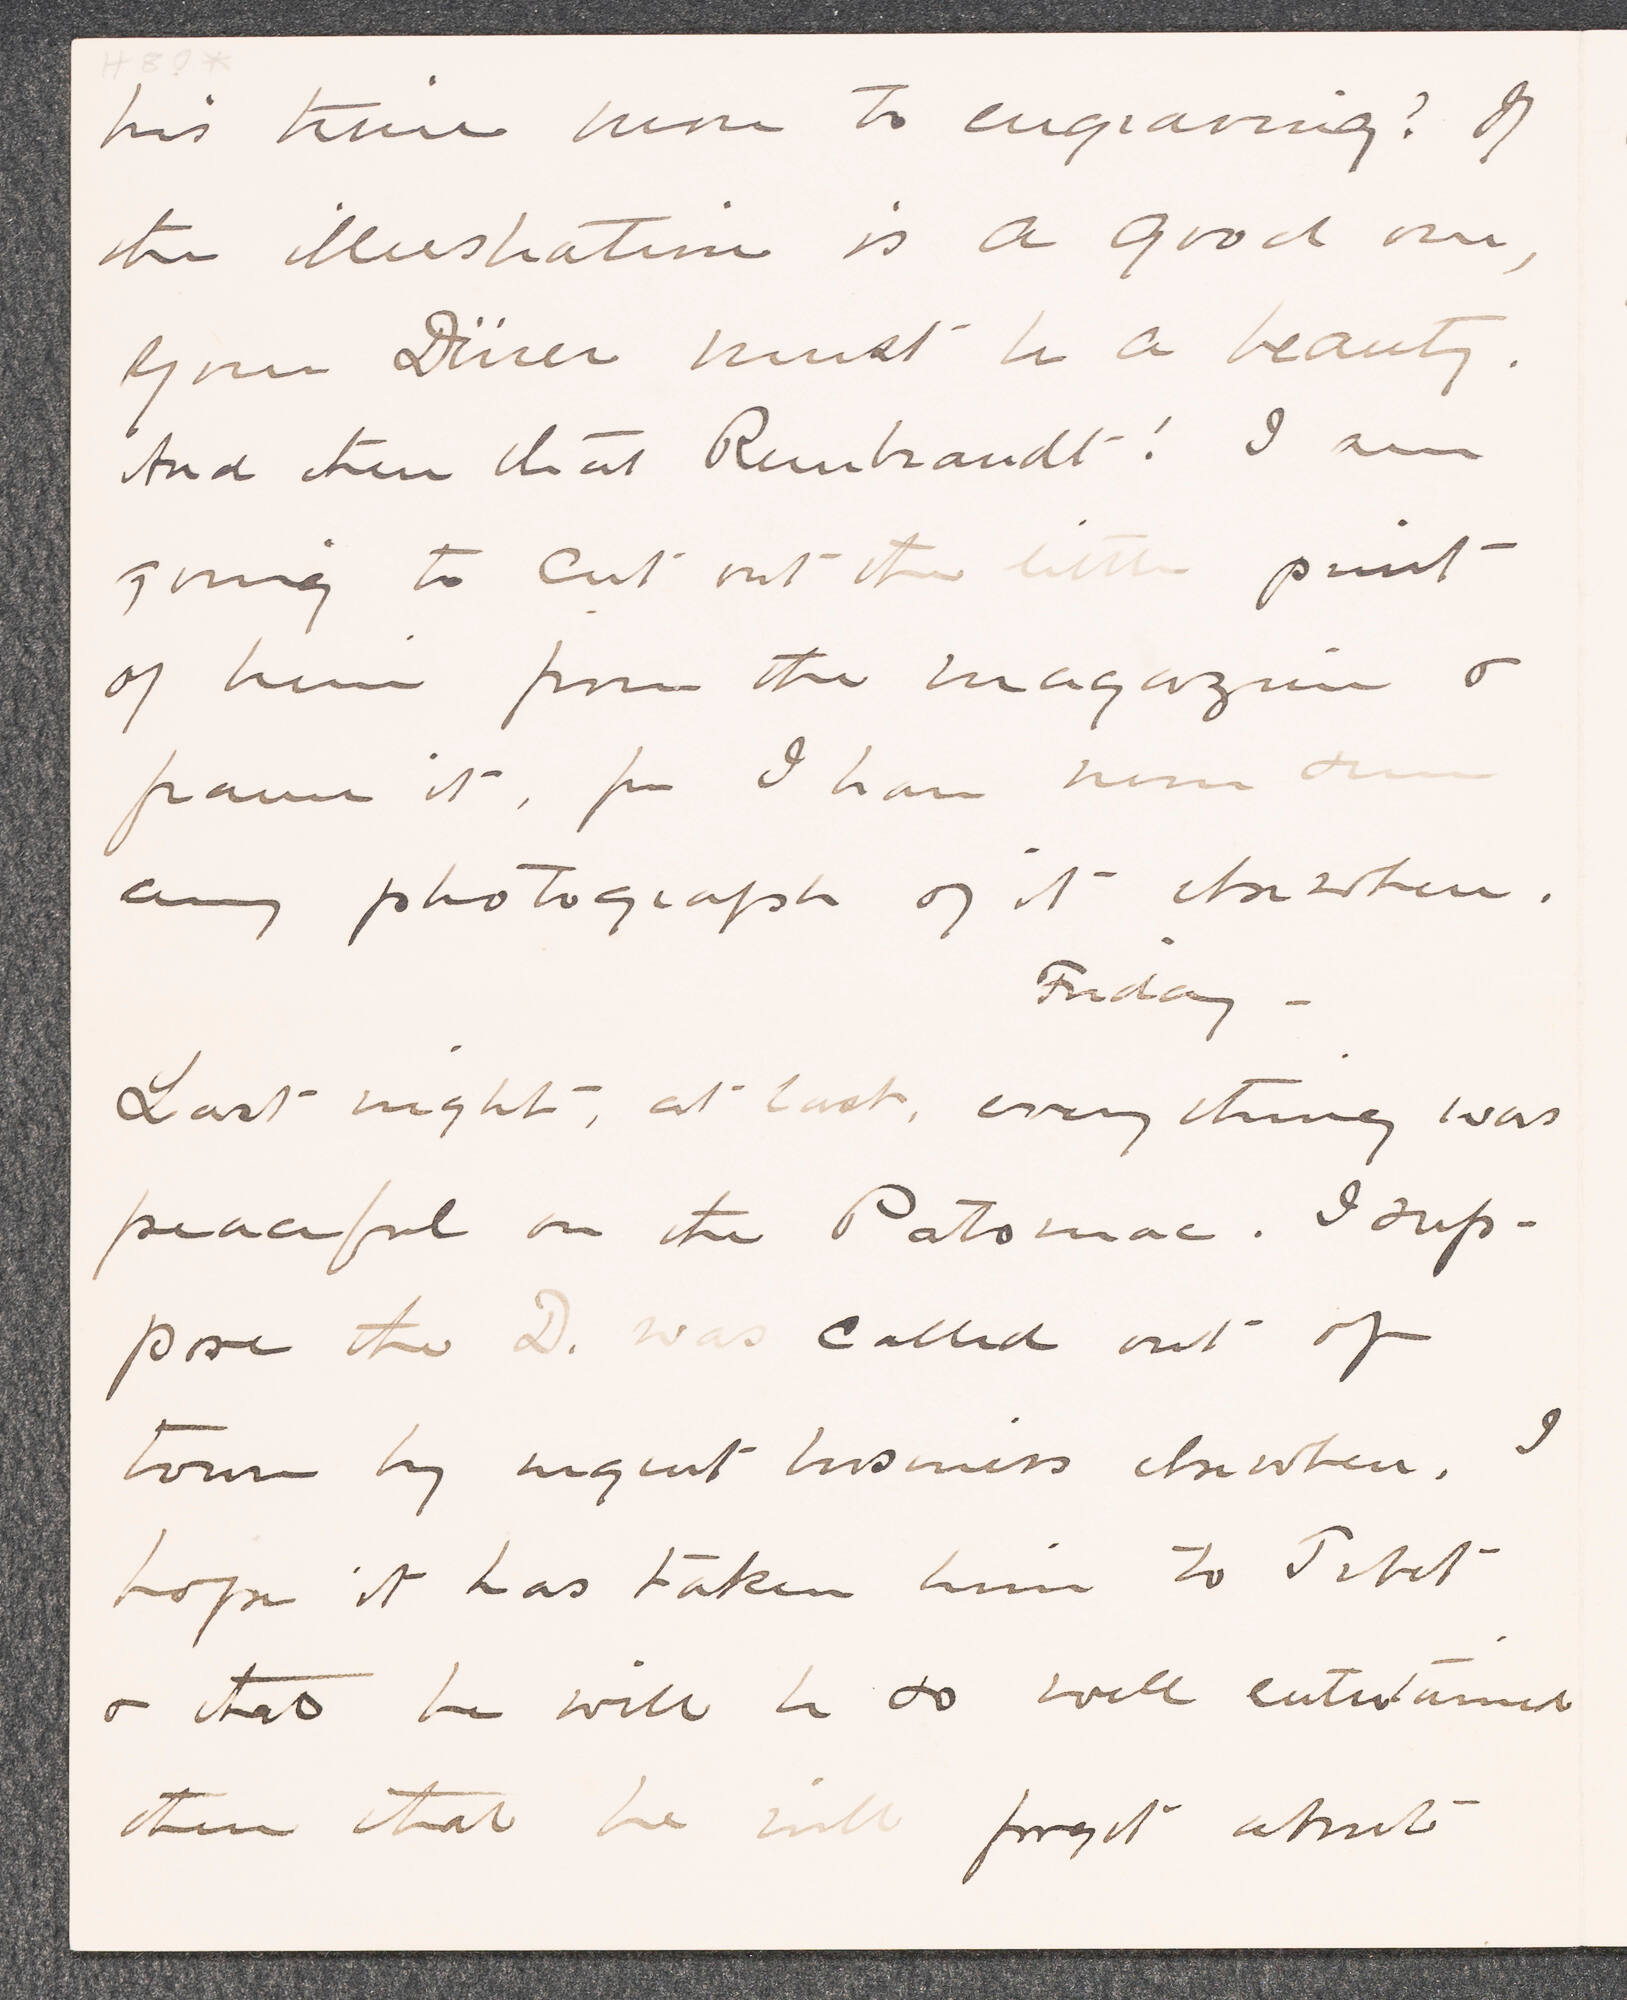 his time more to engraving? If
the illustration is a good one,
your Dürer must be a beauty.
And then that Rembrandt! I am
going to cut out the little print
of him from the magazine &
frame it, for I have never seen
any photograph of it elsewhere.
Friday -
Last night, at last, everything was
peaceful on the Potomac. I sup-
pose the D. was called out of
town by urgent business elsewhere. I
hope it has taken him to Tibet
& that he will be so well entertained
there that he will forget about